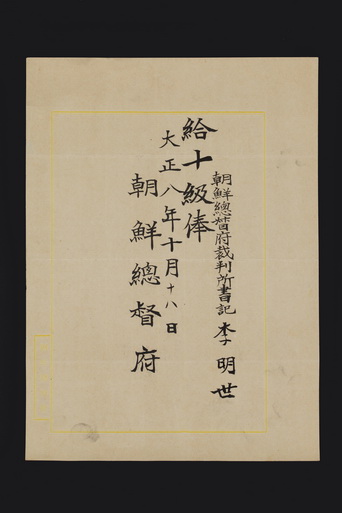 朝鮮總督府裁判所書記 李明世
給十級俸
大正八年十月十八日
朝鮮總督府